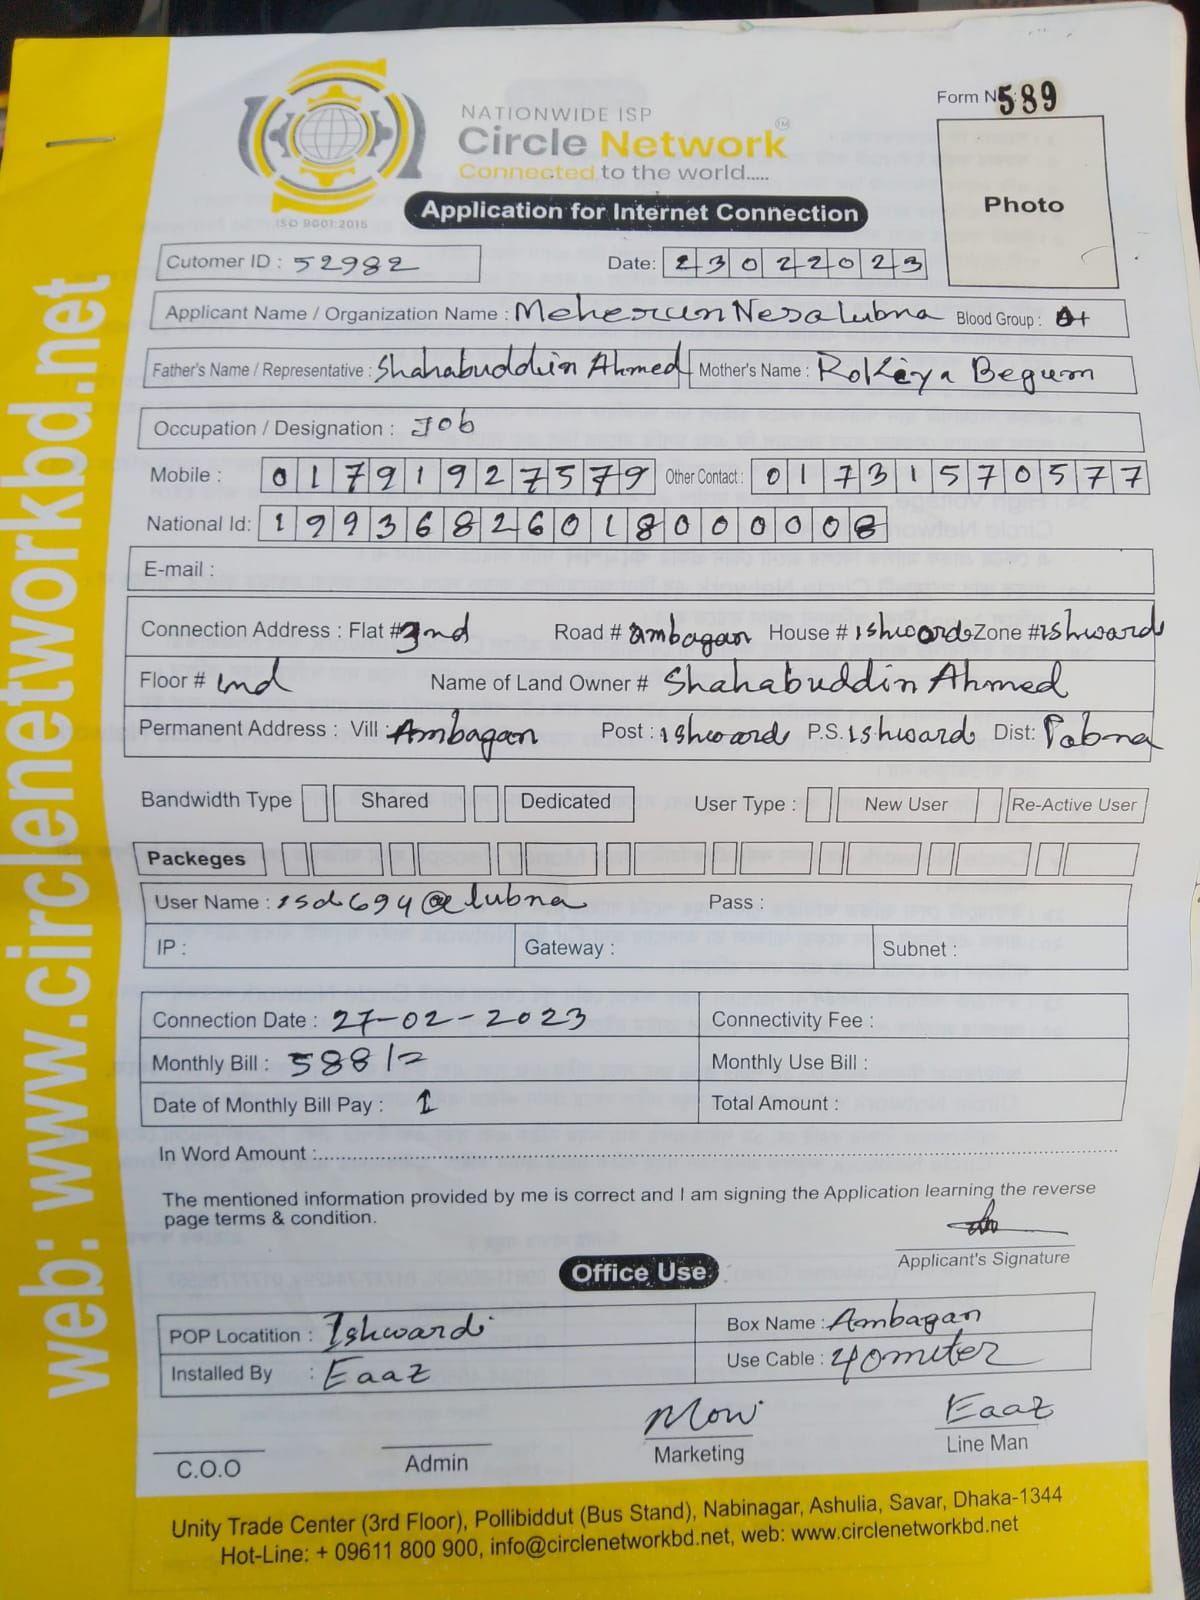 web: www.circlenetworkbd.net
Form N 589
NATIONWIDE ISP
Circle Network TM
Connected to the world.....
ISO 9001:2015
Application for Internet Connection
Photo
Cutomer ID : 52982
Date: 23022023
Applicant Name / Organization Name : Meherun Nesa lubna Blood Group : A+
Father's Name / Representative : Shahabuddin Ahmed Mother's Name : Rokeya Begum
Occupation / Designation : Job
Mobile : 01791927579 Other Contact : 01731570577
National Id: 19936826018000008
E-mail :
Connection Address : Flat # 2nd Road # Ambagan House # ishwardi Zone # ishwardi
Floor # 2nd Name of Land Owner # Shahabuddin Ahmed
Permanent Address : Vill : Ambagan Post : ishwardi P.S. ishwardi Dist: Pabna
Bandwidth Type Shared Dedicated User Type : New User Re-Active User
Packeges
User Name : isd694@lubna Pass :
IP : Gateway : Subnet :
Connection Date : 27-02-2023 Connectivity Fee :
Monthly Bill : 588/= Monthly Use Bill :
Date of Monthly Bill Pay : 1 Total Amount :
In Word Amount :
The mentioned information provided by me is correct and I am signing the Application learning the reverse
page terms & condition.
Applicant's Signature
Office Use
POP Locatition : Ishwardi Box Name : Ambagan
Installed By : Eaaz Use Cable : 40 miter
Mow Eaaz
C.O.O Admin Marketing Line Man
Unity Trade Center (3rd Floor), Pollibiddut (Bus Stand), Nabinagar, Ashulia, Savar, Dhaka-1344
Hot-Line: + 09611 800 900, info@circlenetworkbd.net, web: www.circlenetworkbd.net